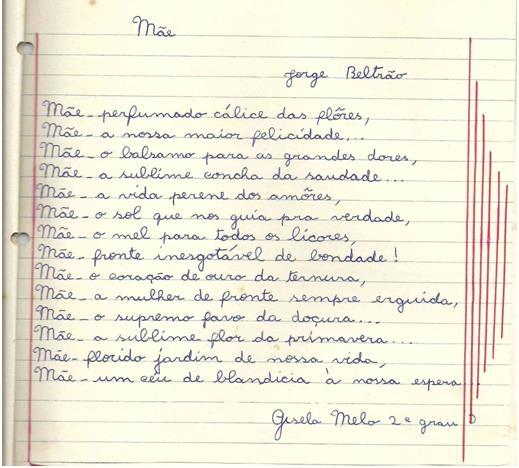 Mãe
Jorge Beltrão
Mãe - perfumado cálice das flôres,
Mãe - a nossa maior felicidade...
Mãe - o balsamo para as grandes dores,
Mãe - a sublime concha da saudade...
Mãe - a vida perene dos amôres,
Mãe - o sol que nos guia pra verdade,
Mãe - o mel para todos os licores,
Mãe - fronte inesgotável de bondade!
Mãe - o coração de ouro da ternura,
Mãe - a mulher de fronte sempre erguida,
Mãe - o supremo favo da doçura...
Mãe - a sublime flor da primavera...
Mãe - florido jardim de nossa vida,
Mãe - um céu de blandicia à nossa espera...
Gisela Melo 2ª grau D